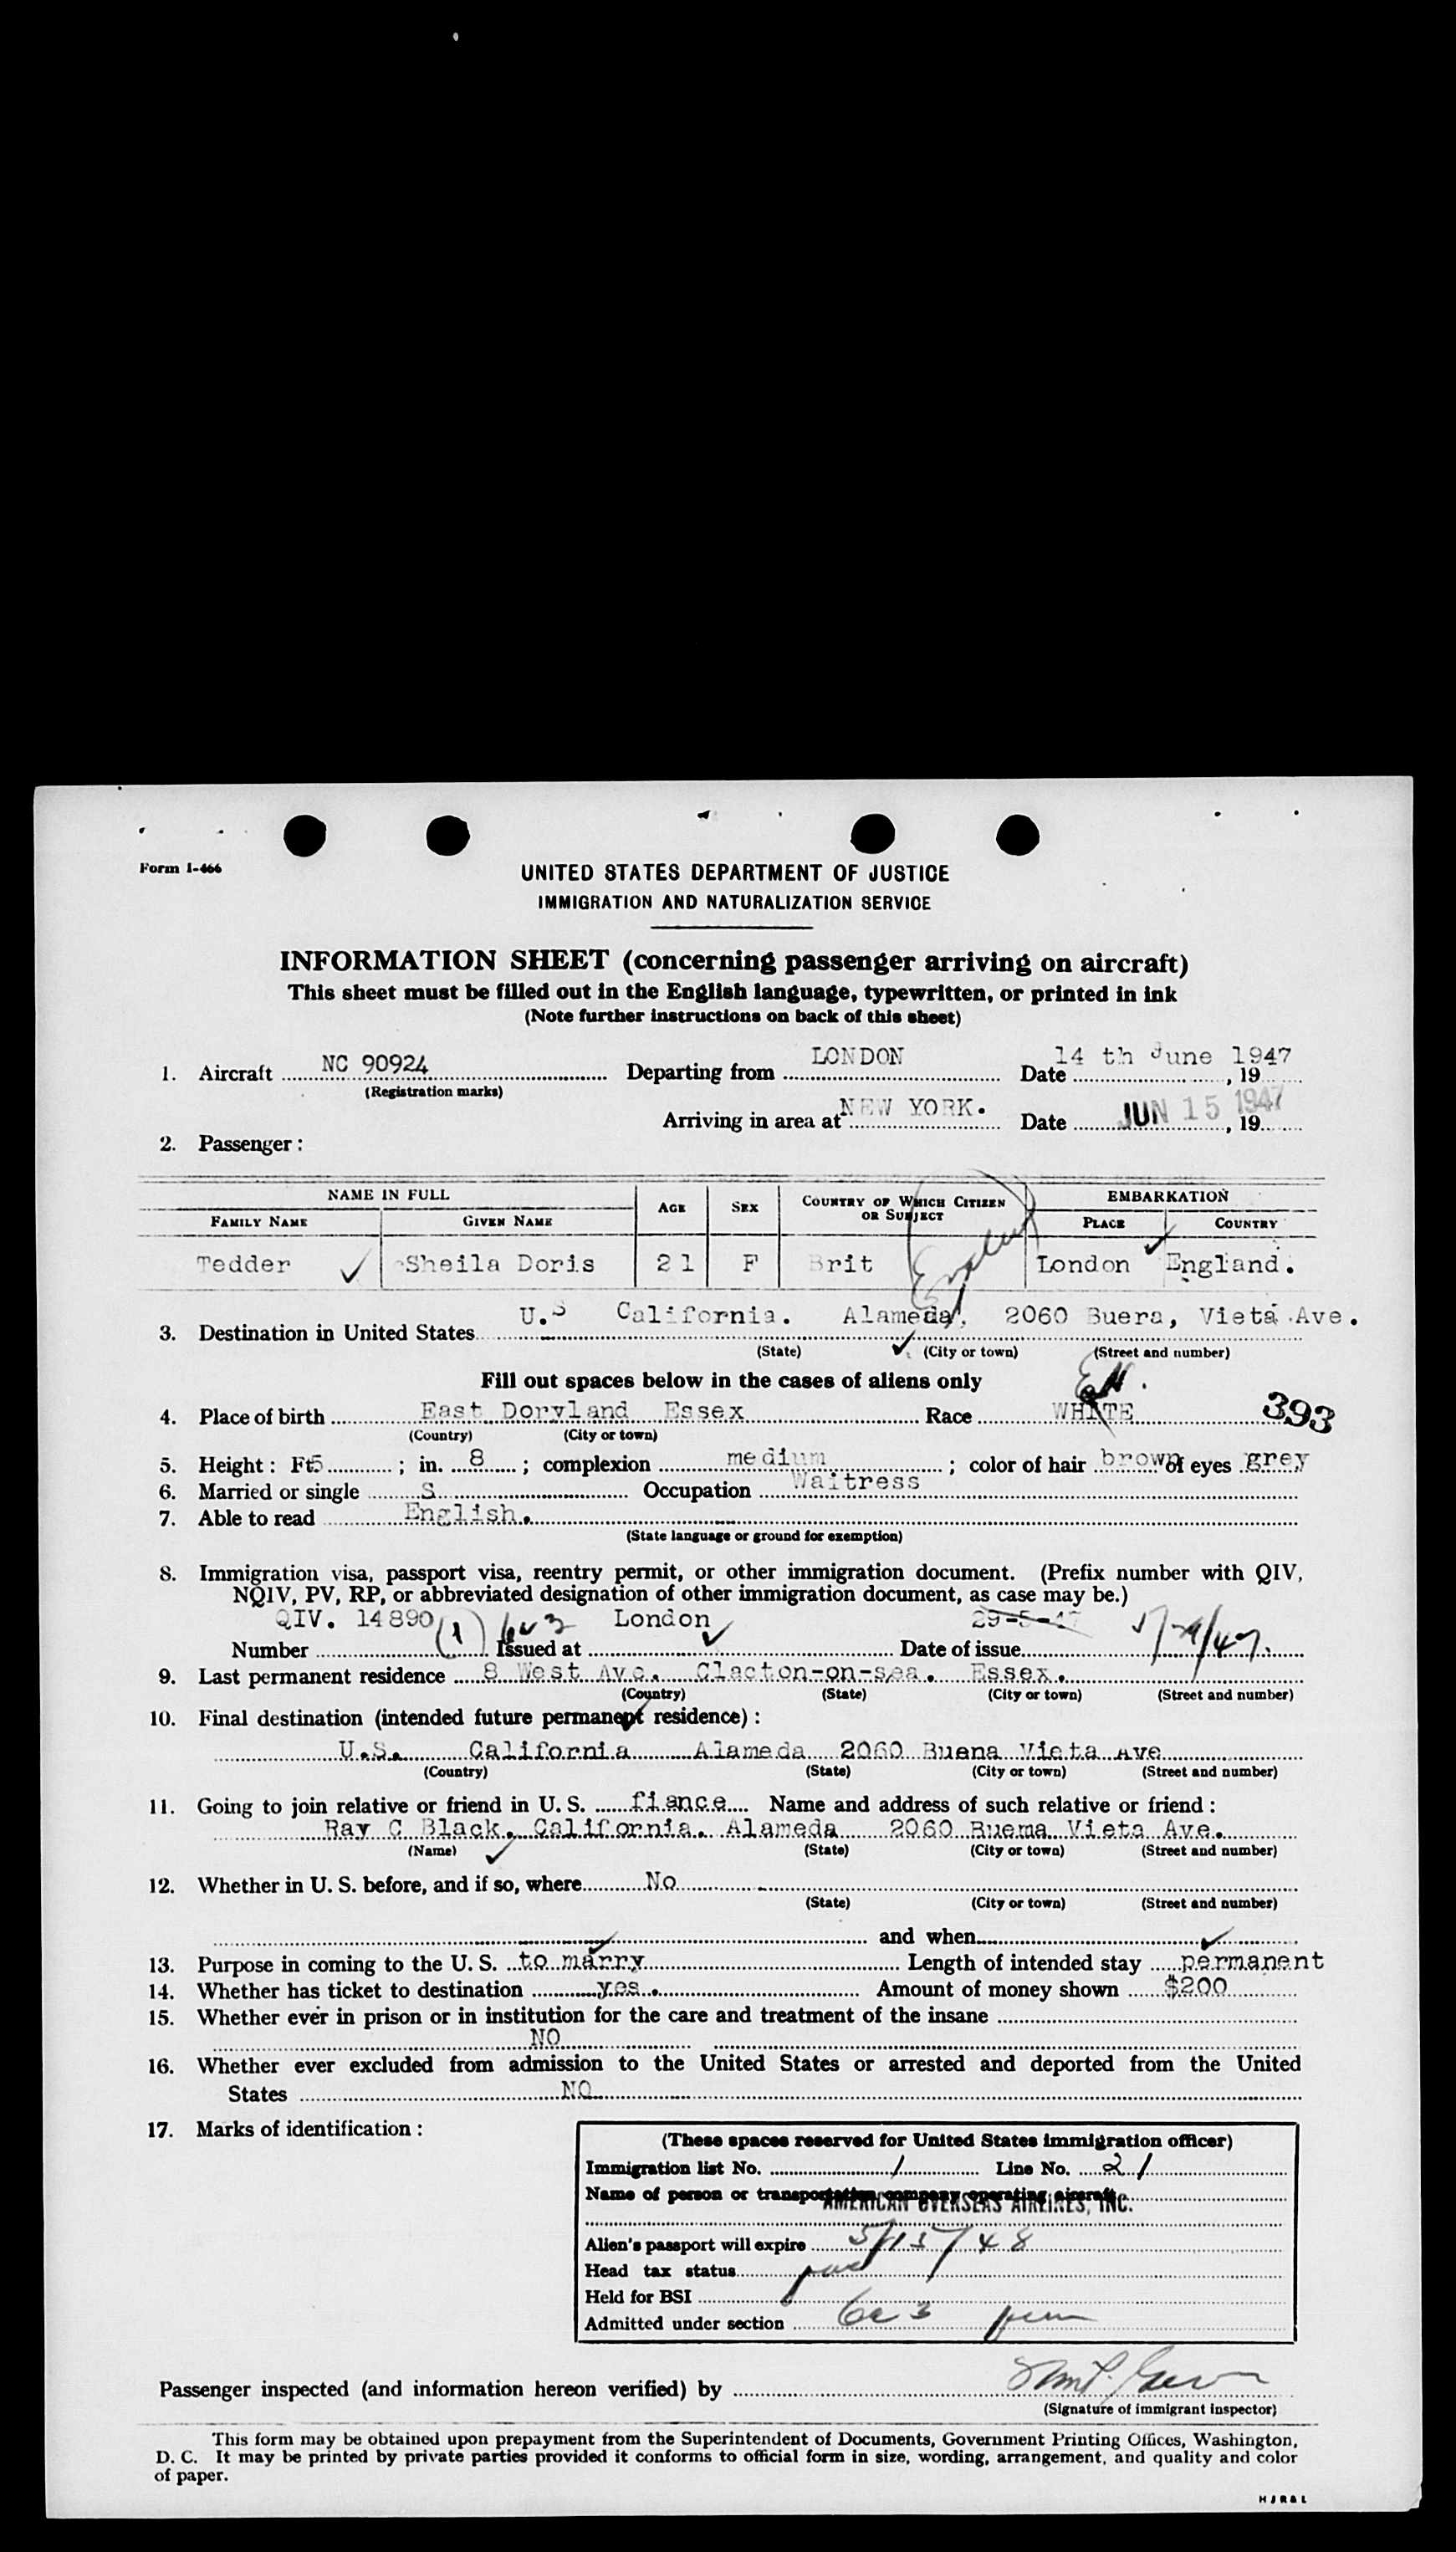 Form I-466
UNITED STATES DEPARTMENT OF JUSTICE
IMMIGRATION AND NATURALIZATION SERVICE
INFORMATION SHEET (concerning passenger arriving on aircraft)
This sheet must be filled out in the English language, typewritten, or printed in ink
(Note further instructions on back of this sheet)
1. Aircraft NC 90924 Departing from LONDON Date 14 th June 1947, 19
(Registration marks)
Arriving in area at NEW YORK. Date JUN 15 1947, 19
2. Passenger :
NAME IN FULL AGE SEX COUNTRY OF WHICH CITIZEN OR SUBJECT EMBARKATION
FAMILY NAME GIVEN NAME PLACE COUNTRY
Tedder Sheila Doris 21 F Brit London England.
3. Destination in United States U.S California. Alameda, 2060 Buera, Vieta Ave.
(State) (City or town) (Street and number)
Fill out spaces below in the cases of aliens only
4. Place of birth East Doryland Essex Race WHITE 393
(Country) (City or town)
5. Height : Ft. 5 ; in. 8 ; complexion medium ; color of hair brown of eyes grey
6. Married or single S Occupation Waitress
7. Able to read English.
(State language or ground for exemption)
8. Immigration visa, passport visa, reentry permit, or other immigration document. (Prefix number with QIV,
NQIV, PV, RP, or abbreviated designation of other immigration document, as case may be.)
QIV. 14890 (1) London 29-5-47
Number Issued at Date of issue
9. Last permanent residence 8 West Ave. Clacton-on-sea. Essex.
(Country) (State) (City or town) (Street and number)
10. Final destination (intended future permanent residence) :
U.S. California Alameda 2060 Buena Vieta Ave
(Country) (State) (City or town) (Street and number)
11. Going to join relative or friend in U. S. fiance Name and address of such relative or friend :
Ray C Black. California. Alameda 2060 Buema Vieta Ave.
(Name) (State) (City or town) (Street and number)
12. Whether in U. S. before, and if so, where No
(State) (City or town) (Street and number)
and when
13. Purpose in coming to the U. S. to marry Length of intended stay permanent
14. Whether has ticket to destination yes. Amount of money shown $200
15. Whether ever in prison or in institution for the care and treatment of the insane
NO
16. Whether ever excluded from admission to the United States or arrested and deported from the United
States NO
17. Marks of identification :
(These spaces reserved for United States immigration officer)
Immigration list No. 1 Line No. 21
Name of person or transportation company operating aircraft
AMERICAN OVERSEAS AIRLINES, INC.
Alien's passport will expire 5/15/48
Head tax status
Held for BSI
Admitted under section
Passenger inspected (and information hereon verified) by
(Signature of immigrant inspector)
This form may be obtained upon prepayment from the Superintendent of Documents, Government Printing Offices, Washington,
D. C. It may be printed by private parties provided it conforms to official form in size, wording, arrangement, and quality and color
of paper.
HJR&L